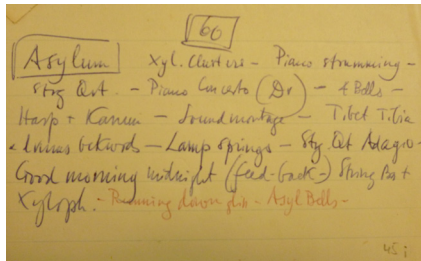 60
Asylum Xyl. Clusters - Piano strumming -
Strg Qrt. - Piano Concerto (Dr) - 4 Bells -
Harp + Kanun - Sound montage - Tibet Tibia
backwords - Lamp springs - Stg. Qt Adagio -
Good morning midnight (feed-back) String Bas +
Xyloph. - Running down glis - Asyl Bells -
45